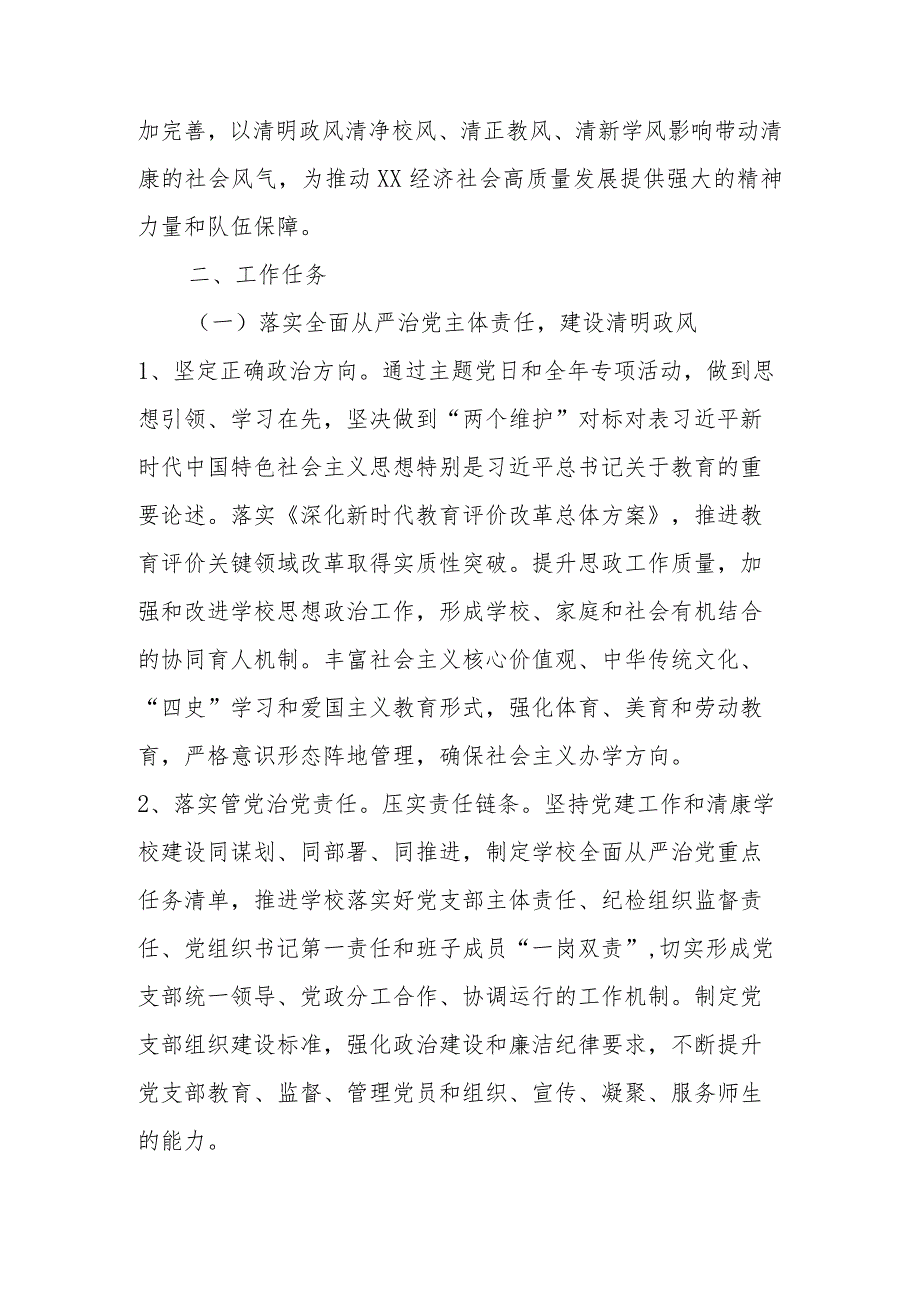 加完善，以清明政风清净校风、清正教风、清新学风影响带动清
康的社会风气，为推动 XX 经济社会高质量发展提供强大的精神
力量和队伍保障。
二、工作任务
（一）落实全面从严治党主体责任，建设清明政风
1、坚定正确政治方向。通过主题党日和全年专项活动，做到思
想引领、学习在先，坚决做到“两个维护”对标对表习近平新
时代中国特色社会主义思想特别是习近平总书记关于教育的重
要论述。落实《深化新时代教育评价改革总体方案》，推进教
育评价关键领域改革取得实质性突破。提升思政工作质量，加
强和改进学校思想政治工作，形成学校、家庭和社会有机结合
的协同育人机制。丰富社会主义核心价值观、中华传统文化、
“四史”学习和爱国主义教育形式，强化体育、美育和劳动教
育，严格意识形态阵地管理，确保社会主义办学方向。
2、落实管党治党责任。压实责任链条。坚持党建工作和清康学
校建设同谋划、同部署、同推进，制定学校全面从严治党重点
任务清单，推进学校落实好党支部主体责任、纪检组织监督责
任、党组织书记第一责任和班子成员“一岗双责”,切实形成党
支部统一领导、党政分工合作、协调运行的工作机制。制定党
支部组织建设标准，强化政治建设和廉洁纪律要求，不断提升
党支部教育、监督、管理党员和组织、宣传、凝聚、服务师生
的能力。